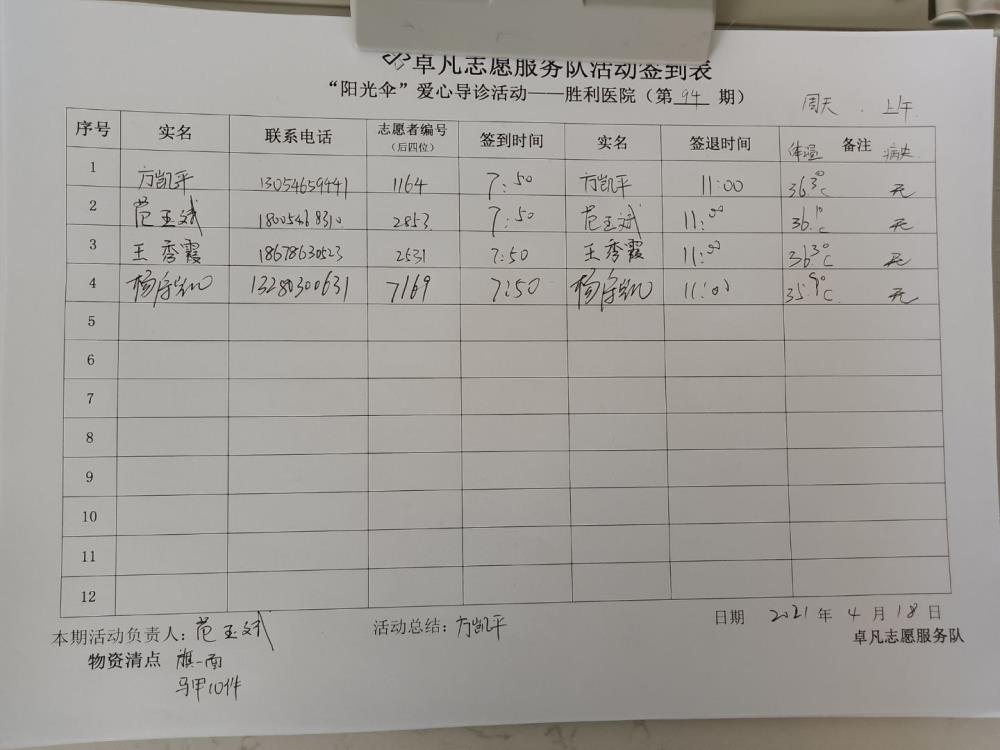 卓凡志愿服务队活动签到表
“阳光伞”爱心导诊活动——胜利医院（第 94 期）
周天 . 上午
序号 实名 联系电话 志愿者编号（后四位） 签到时间 实名 签退时间 体温 备注 病史
1 方凯平 13054659441 1164 7:50 方凯平 11:00 36.3℃ 无
2 范玉斌 18005468310 2853 7:50 范玉斌 11:00 36.1℃ 无
3 王秀霞 18678630523 2531 7:50 王秀霞 11:00 36.3℃ 无
4 杨 13280300631 7169 7:50 杨 11:00 35.9℃ 无
5
6
7
8
9
10
11
12
本期活动负责人：范玉斌 活动总结：方凯平 日期 2021 年 4 月 18 日
卓凡志愿服务队
物资清点 旗一面
马甲10件